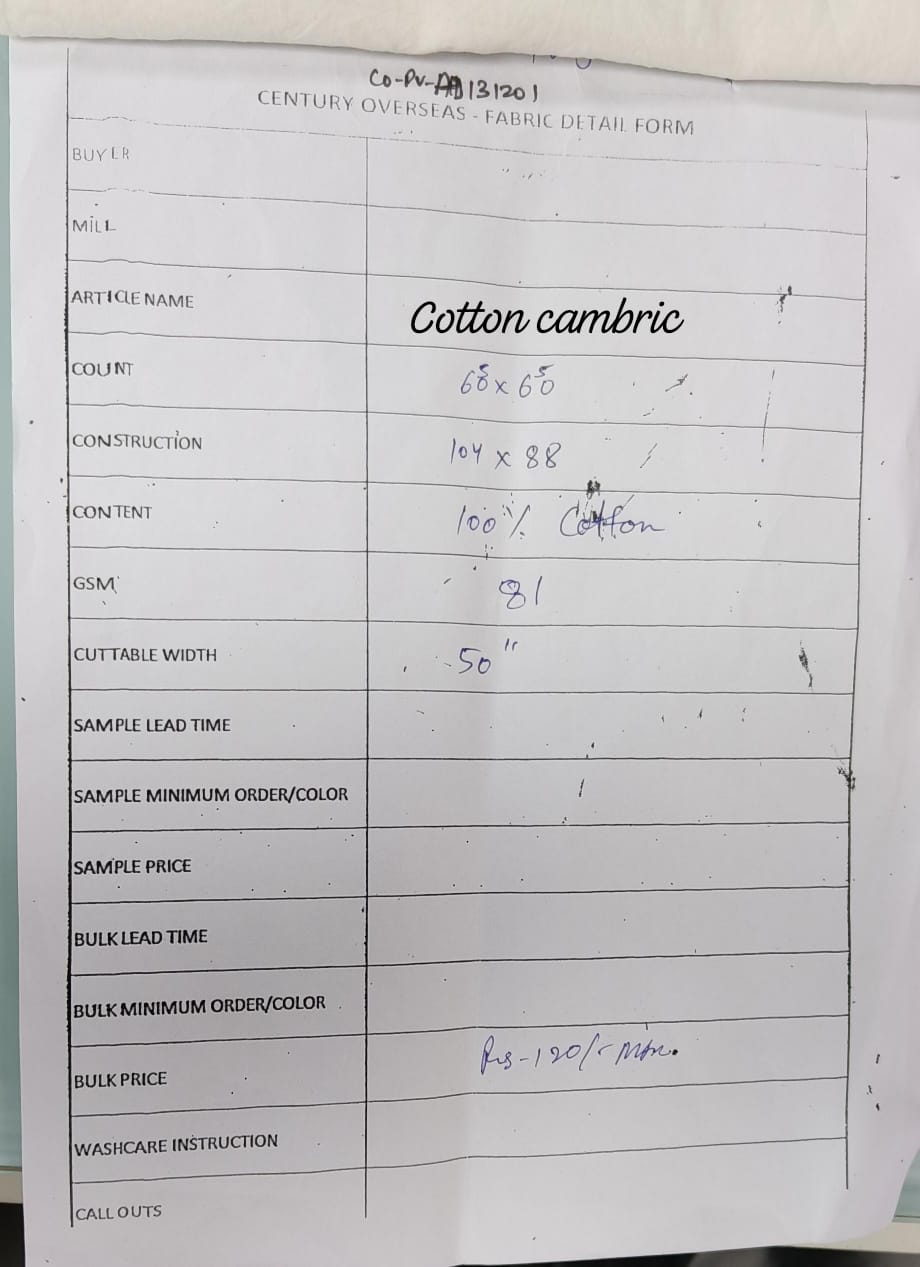 Co-PV-AD131201
CENTURY OVERSEAS - FABRIC DETAIL FORM
BUYER
MILL
ARTICLE NAME Cotton cambric
COUNT 60s x 60s
CONSTRUCTION 104 x 88
CONTENT 100% Cotton
GSM 81
CUTTABLE WIDTH 50"
SAMPLE LEAD TIME
SAMPLE MINIMUM ORDER/COLOR
SAMPLE PRICE
BULK LEAD TIME
BULK MINIMUM ORDER/COLOR
BULK PRICE Rs-120/-
WASHCARE INSTRUCTION
CALL OUTS